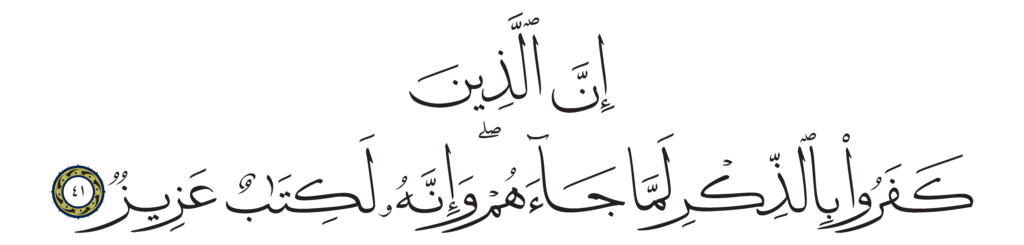 إِنَّ ٱلَّذِينَ
كَفَرُوا۟ بِٱلذِّكْرِ لَمَّا جَآءَهُمْ ۖ وَإِنَّهُۥ لَكِتَـٰبٌ عَزِيزٌ ٤١